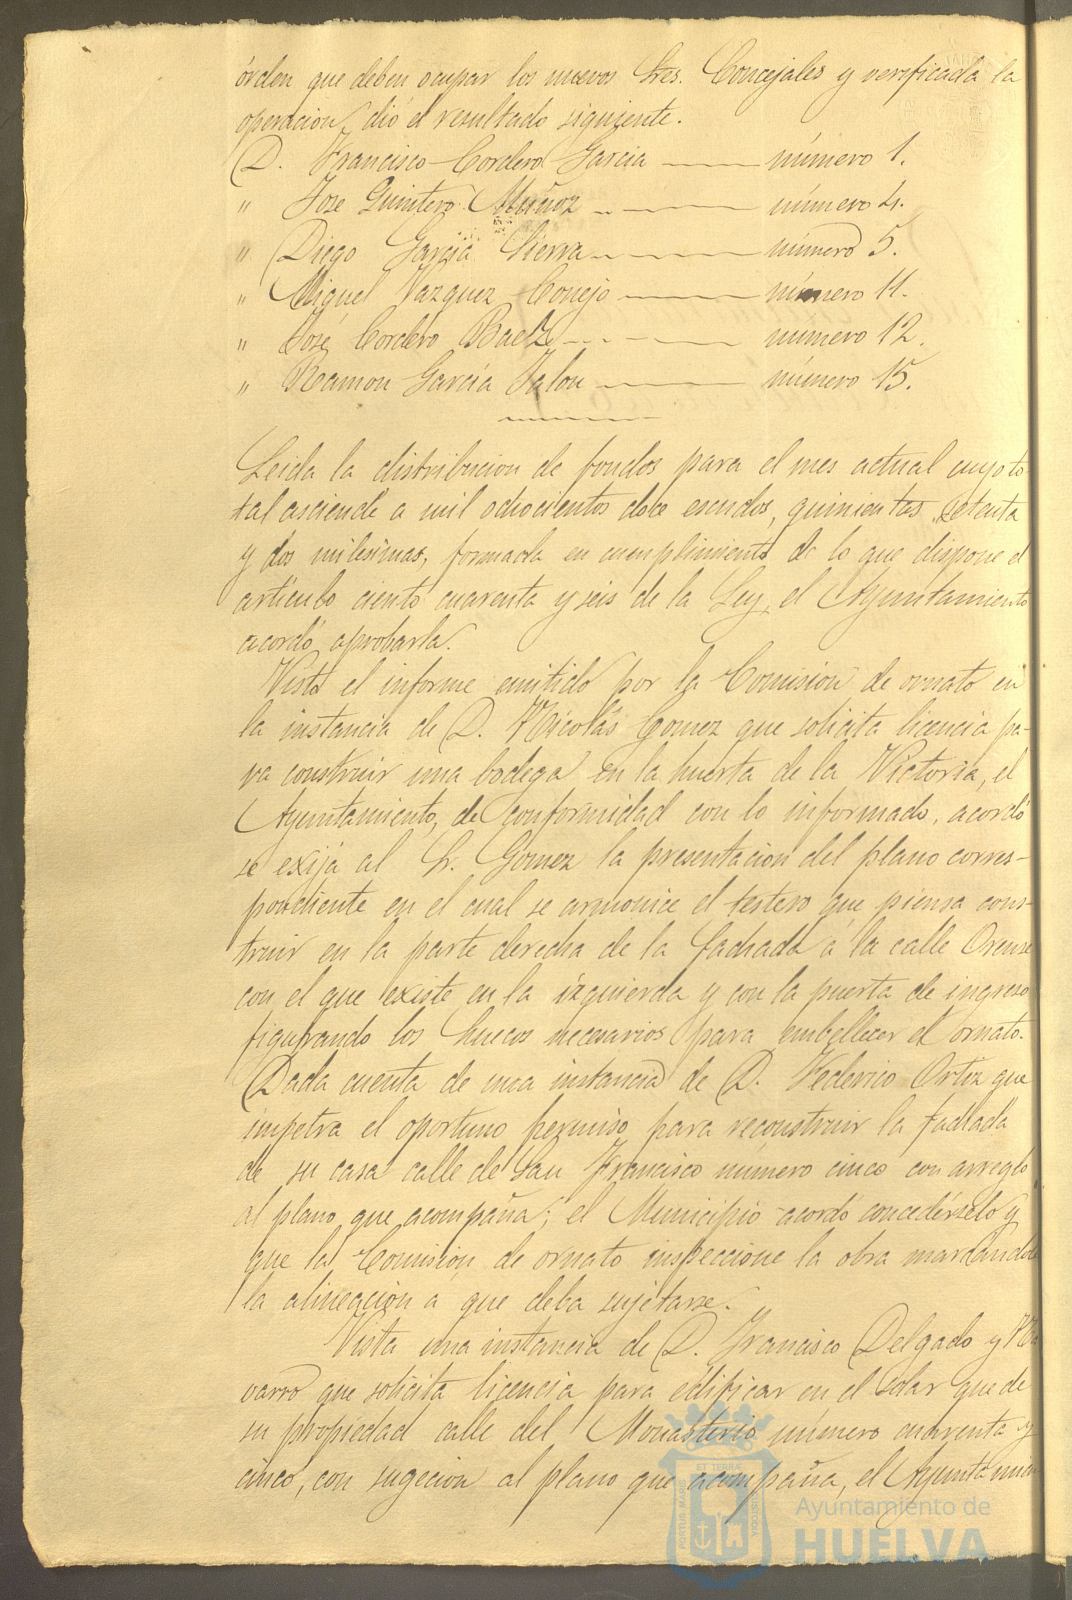 órden que deben ocupar los nuevos Sres. Concejales y verificada la
operacion, dió el resultado siguiente.
D. Francisco Cordero Garcia —— número 1.
" José Quintero Muñoz —— número 4.
" Diego García Sierra —— número 5.
" Miguel Vazquez Conejo —— número 11.
" José Cordero Baez —— número 12.
" Ramon García Jalon —— número 15.
Leida la distribucion de fondos para el mes actual cuyo to-
tal asciende a mil ochocientos doce escudos, quinientas setenta
y dos milesimas, formada en cumplimiento de lo que dispone el
artículo ciento cuarenta y seis de la Ley, el Ayuntamiento
acordó aprobarla.
Visto el informe emitido por la Comision de ornato en
la instancia de D. Nicolás Gomez que solicita licencia pa-
ra construir una bodega en la huerta de la Victoria, el
Ayuntamiento, de conformidad con lo informado, acordó
se exija al Sr. Gomez la presentacion del plano corres-
pondiente en el cual se armonice el testero que piensa cons-
truir en la parte derecha de la fachada á la calle Orense
con el que existe en la izquierda y con la puerta de ingreso
figurando los huecos necesarios para embellecer el ornato.
Dada cuenta de una instancia de D. Federico Ortiz que
impetra el oportuno permiso para reconstruir la fachada
de su casa calle de San Francisco número cinco con arreglo
al plano que acompaña; el Municipio acordó concedérselo y
que la Comision de ornato inspeccione la obra marcándole
la alineacion a que deba sujetarse.
Vista una instancia de D. Francisco Delgado y Na
varro que solicita licencia para edificar en el solar que de
su propiedad calle del Monasterio número cuarenta y
cinco, con sugecion al plano que acompaña, el Ayuntamien
PORTUS MARIS
ET TERRÆ
CUSTODIA
Ayuntamiento de
HUELVA